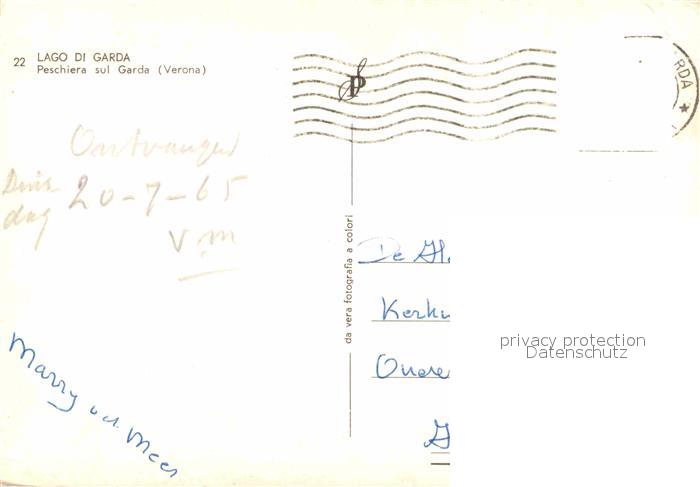 22 LAGO DI GARDA
Peschiera sul Garda (Verona)
RDA
Ontvangen
Dins-
dag
20-7-65
Vm
Marry v.d. Meer
da vera fotografia a colori
De H.
Kerk
privacy protection
Datenschutz